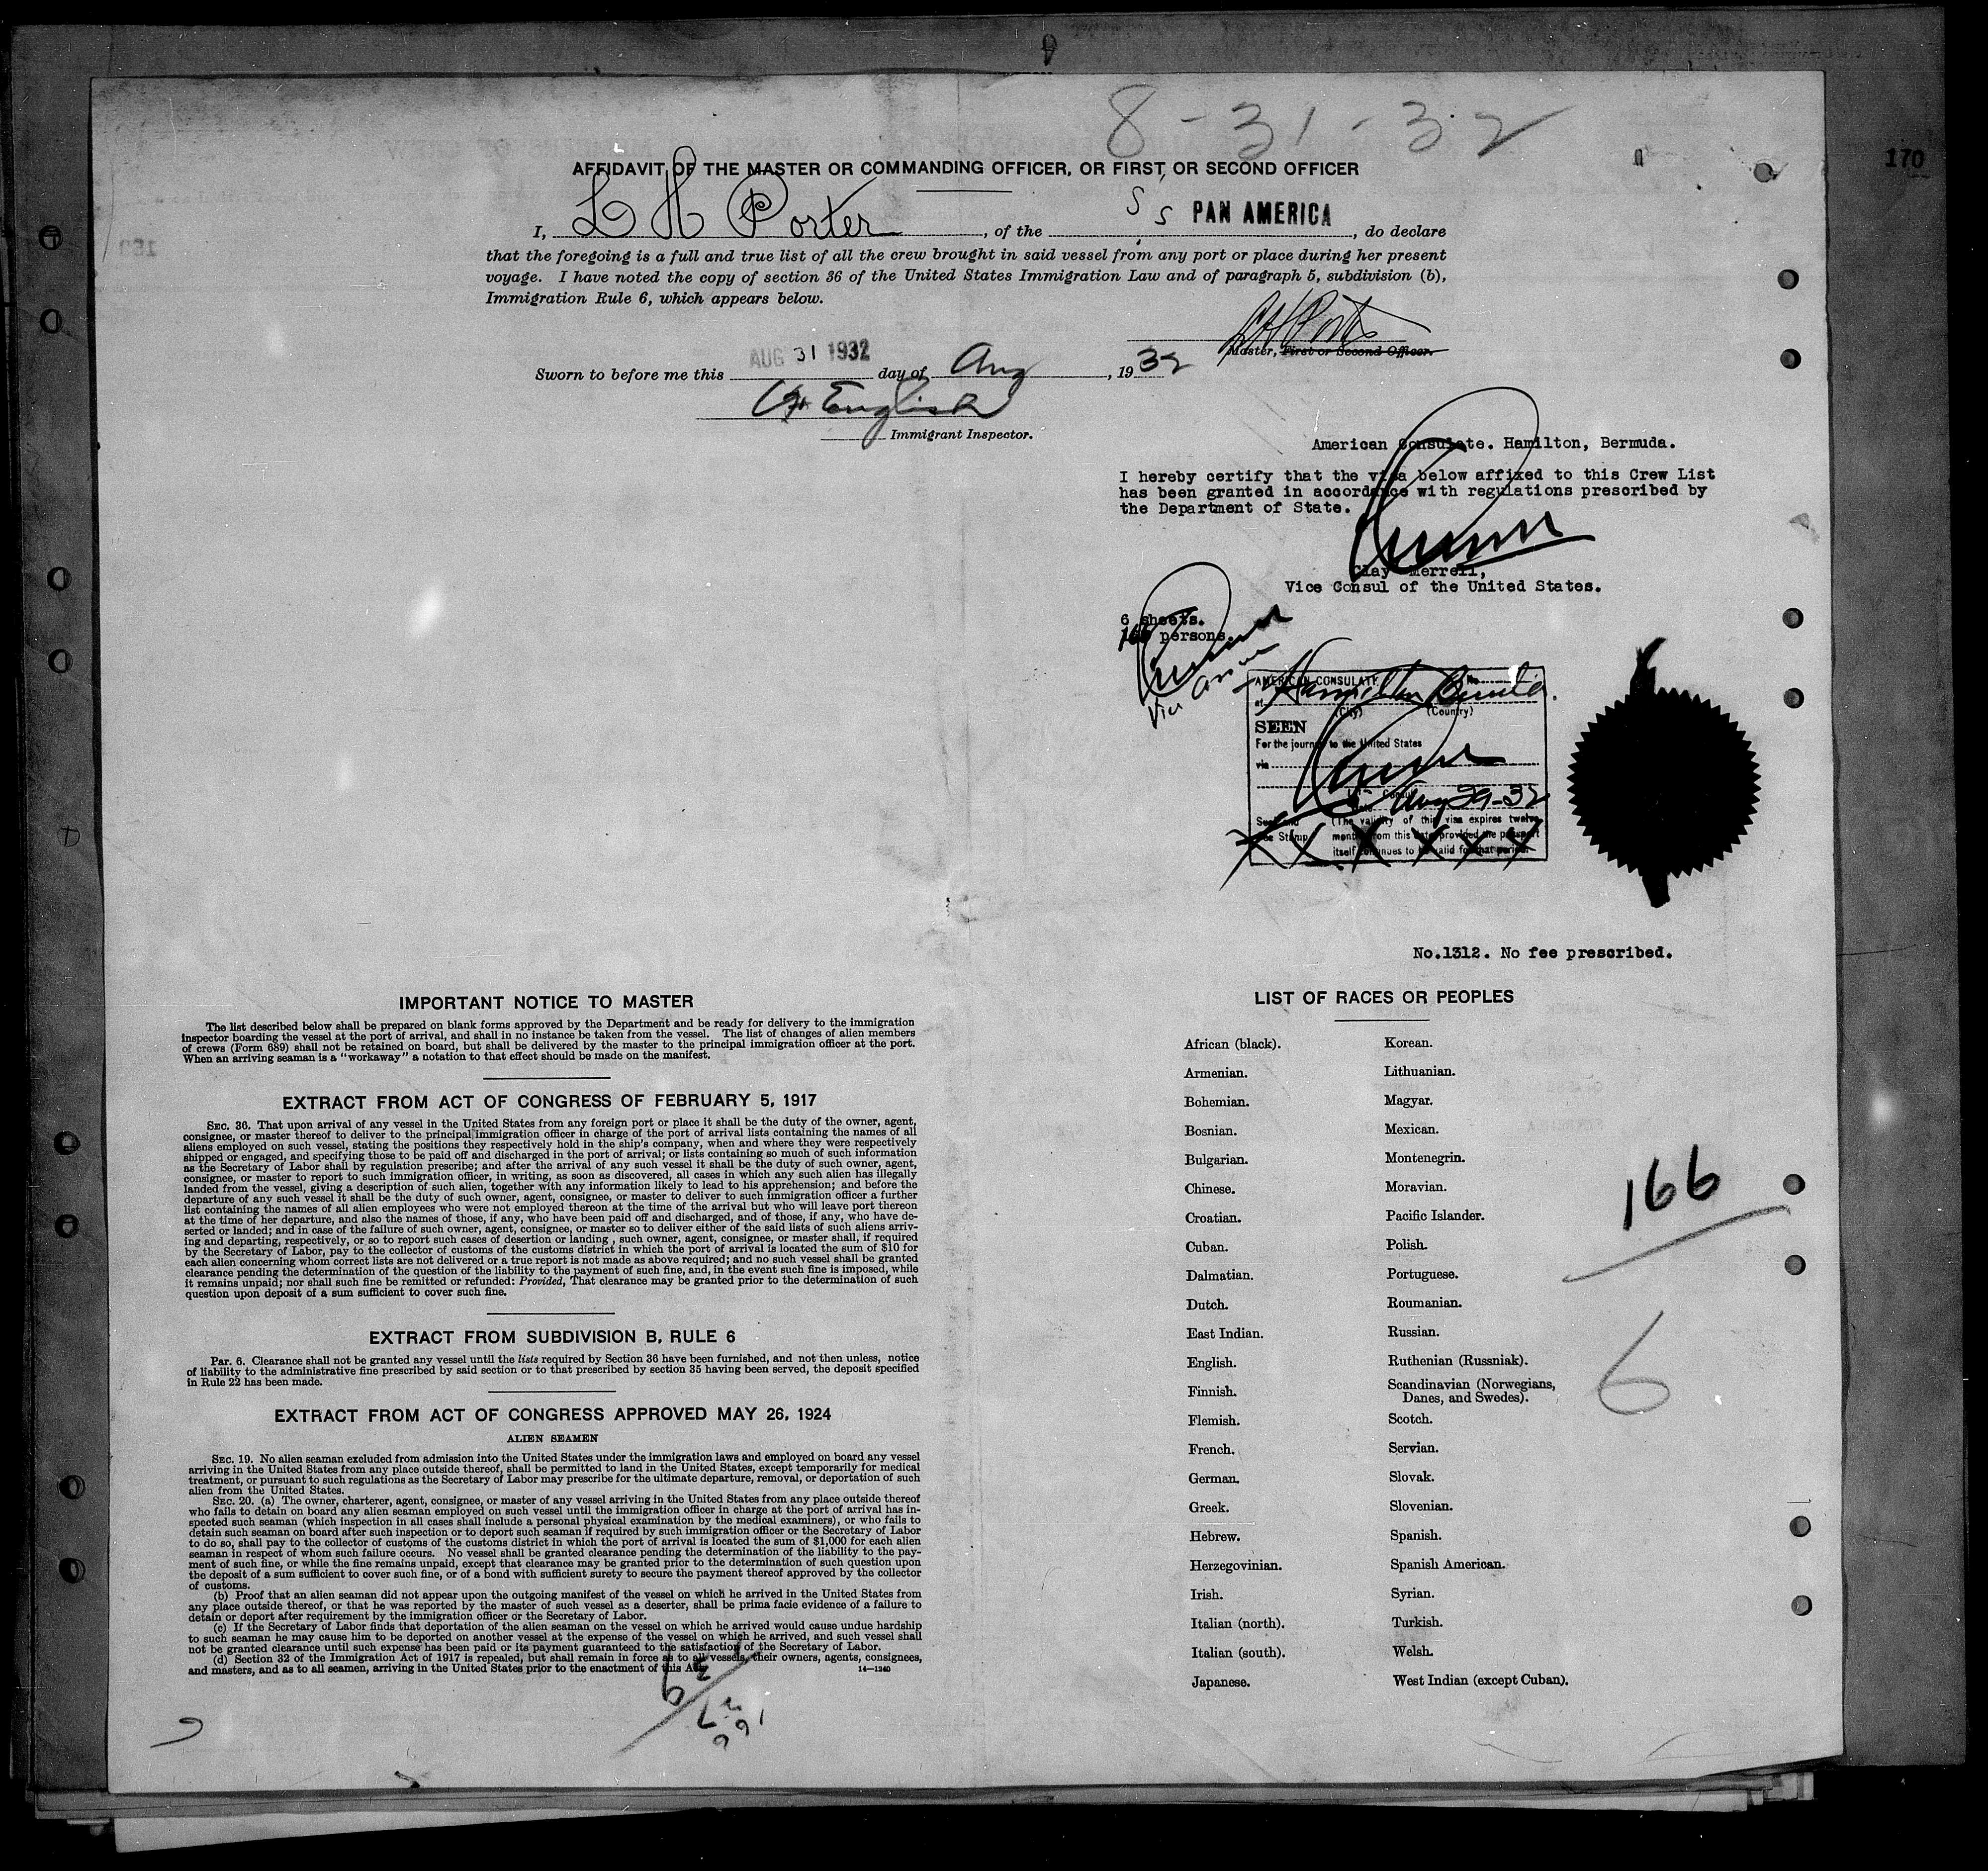 8-31-32
170
AFFIDAVIT OF THE MASTER OR COMMANDING OFFICER, OR FIRST OR SECOND OFFICER
I, L H Porter, of the S S PAN AMERICA, do declare
that the foregoing is a full and true list of all the crew brought in said vessel from any port or place during her present
voyage. I have noted the copy of section 36 of the United States Immigration Law and of paragraph 5, subdivision (b),
Immigration Rule 6, which appears below.
L H Porter
Master, First or Second Officer.
Sworn to before me this AUG 31 1932 day of Aug, 1932
English
Immigrant Inspector.
American Consulate. Hamilton, Bermuda.
I hereby certify that the visa below affixed to this Crew List
has been granted in accordance with regulations prescribed by
the Department of State.
Clay Merrell,
Vice Consul of the United States.
6 sheets.
166 persons.
AMERICAN CONSULATE No.
at Hamilton Bermuda.
(City) (Country)
SEEN
For the journey to the United States
via
Consul
Date Aug 29-32
Seal and (The validity of this visa expires twelve
Fee Stamp months from this date provided the passport
itself continues to be valid for that period.
No.1312. No fee prescribed.
IMPORTANT NOTICE TO MASTER
The list described below shall be prepared on blank forms approved by the Department and be ready for delivery to the immigration
inspector boarding the vessel at the port of arrival, and shall in no instance be taken from the vessel. The list of changes of alien members
of crews (Form 689) shall not be retained on board, but shall be delivered by the master to the principal immigration officer at the port.
When an arriving seaman is a "workaway" a notation to that effect should be made on the manifest.
EXTRACT FROM ACT OF CONGRESS OF FEBRUARY 5, 1917
SEC. 36. That upon arrival of any vessel in the United States from any foreign port or place it shall be the duty of the owner, agent,
consignee, or master thereof to deliver to the principal immigration officer in charge of the port of arrival lists containing the names of all
aliens employed on such vessel, stating the positions they respectively hold in the ship's company, when and where they were respectively
shipped or engaged, and specifying those to be paid off and discharged in the port of arrival; or lists containing so much of such information
as the Secretary of Labor shall by regulation prescribe; and after the arrival of any such vessel it shall be the duty of such owner, agent,
consignee, or master to report to such immigration officer, in writing, as soon as discovered, all cases in which any such alien has illegally
landed from the vessel, giving a description of such alien, together with any information likely to lead to his apprehension; and before the
departure of any such vessel it shall be the duty of such owner, agent, consignee, or master to deliver to such immigration officer a further
list containing the names of all alien employees who were not employed thereon at the time of the arrival but who will leave port thereon
at the time of her departure, and also the names of those, if any, who have been paid off and discharged, and of those, if any, who have de-
serted or landed; and in case of the failure of such owner, agent, consignee, or master so to deliver either of the said lists of such aliens arriv-
ing and departing, respectively, or so to report such cases of desertion or landing , such owner, agent, consignee, or master shall, if required
by the Secretary of Labor, pay to the collector of customs of the customs district in which the port of arrival is located the sum of $10 for
each alien concerning whom correct lists are not delivered or a true report is not made as above required; and no such vessel shall be granted
clearance pending the determination of the question of the liability to the payment of such fine, and, in the event such fine is imposed, while
it remains unpaid; nor shall such fine be remitted or refunded: Provided, That clearance may be granted prior to the determination of such
question upon deposit of a sum sufficient to cover such fine.
EXTRACT FROM SUBDIVISION B, RULE 6
Par. 6. Clearance shall not be granted any vessel until the lists required by Section 36 have been furnished, and not then unless, notice
of liability to the administrative fine prescribed by said section or to that prescribed by section 35 having been served, the deposit specified
in Rule 22 has been made.
EXTRACT FROM ACT OF CONGRESS APPROVED MAY 26, 1924
ALIEN SEAMEN
SEC. 19. No alien seaman excluded from admission into the United States under the immigration laws and employed on board any vessel
arriving in the United States from any place outside thereof, shall be permitted to land in the United States, except temporarily for medical
treatment, or pursuant to such regulations as the Secretary of Labor may prescribe for the ultimate departure, removal, or deportation of such
alien from the United States.
SEC. 20. (a) The owner, charterer, agent, consignee, or master of any vessel arriving in the United States from any place outside thereof
who fails to detain on board any alien seaman employed on such vessel until the immigration officer in charge at the port of arrival has in-
spected such seaman (which inspection in all cases shall include a personal physical examination by the medical examiners), or who fails to
detain such seaman on board after such inspection or to deport such seaman if required by such immigration officer or the Secretary of Labor
to do so, shall pay to the collector of customs of the customs district in which the port of arrival is located the sum of $1,000 for each alien
seaman in respect of whom such failure occurs. No vessel shall be granted clearance pending the determination of the liability to the pay-
ment of such fine, or while the fine remains unpaid, except that clearance may be granted prior to the determination of such question upon
the deposit of a sum sufficient to cover such fine, or of a bond with sufficient surety to secure the payment thereof approved by the collector
of customs.
(b) Proof that an alien seaman did not appear upon the outgoing manifest of the vessel on which he arrived in the United States from
any place outside thereof, or that he was reported by the master of such vessel as a deserter, shall be prima facie evidence of a failure to
detain or deport after requirement by the immigration officer or the Secretary of Labor.
(c) If the Secretary of Labor finds that deportation of the alien seaman on the vessel on which he arrived would cause undue hardship
to such seaman he may cause him to be deported on another vessel at the expense of the vessel on which he arrived, and such vessel shall
not be granted clearance until such expense has been paid or its payment guaranteed to the satisfaction of the Secretary of Labor.
(d) Section 32 of the Immigration Act of 1917 is repealed, but shall remain in force as to all vessels, their owners, agents, consignees,
and masters, and as to all seamen, arriving in the United States prior to the enactment of this Act.
14—1240
LIST OF RACES OR PEOPLES
African (black). Korean.
Armenian. Lithuanian.
Bohemian. Magyar.
Bosnian. Mexican.
Bulgarian. Montenegrin.
Chinese. Moravian.
Croatian. Pacific Islander.
Cuban. Polish.
Dalmatian. Portuguese.
Dutch. Roumanian.
East Indian. Russian.
English. Ruthenian (Russniak).
Finnish. Scandinavian (Norwegians,
Danes, and Swedes).
Flemish. Scotch.
French. Servian.
German. Slovak.
Greek. Slovenian.
Hebrew. Spanish.
Herzegovinian. Spanish American.
Irish. Syrian.
Italian (north). Turkish.
Italian (south). Welsh.
Japanese. West Indian (except Cuban).
166
6